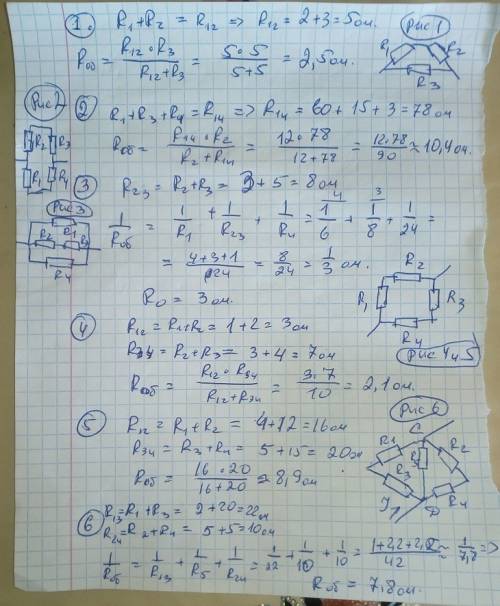 1. R₁+R₂ = R₁₂ => R₁₂ = 2+3=5ом.
Rоб = R₁₂∘R₃ / R₁₂+R₃ = 5∘5 / 5+5 = 2,5ом.
Рис 1
R₁ R₂
R₃
Рис 2
R₂ R₃
R₁ R₄
2 R₁+R₃+R₄=R₁₄ => R₁₄ = 60+15+3=78ом
Rоб = R₁₄∘R₂ / R₂+R₁₄ = 12∘78 / 12+78 = 12.78 / 90 ≈ 10,4ом.
3 R₂₃ = R₂+R₃ = 3+5=8ом
Рис 3
R₁
R₂ R₃
R₄
1/Rоб = 1/R₁ + 1/R₂₃ + 1/R₄ = 1/6 + 1/8 + 1/24 =
= 4+3+1 / 24 = 8/24 = 1/3 ом.
R₀ = 3ом.
R₂
R₁ R₃
R₄
Рис 4 и 5
4 R₁₂ = R₁+R₂ = 1+2=3ом
R₃₄ = R₂+R₃ = 3+4=7ом
Rоб = R₁₂∘R₃₄ / R₁₂+R₃₄ = 3.7 / 10 = 2,1ом.
5 R₁₂ = R₁+R₂ = 4+12=16ом
R₃₄ = R₃+R₄ = 5+15= 20ом
Rоб = 16∘20 / 16+20 ≈ 8,9ом
Рис 6
C
R₁ R₂
R₃
R₄
D
6 R₁₃=R₁+R₃ = 2+20=22ом
R₂₄=R₂+R₄ = 5+5=10ом
1/Rоб = 1/R₁₃ + 1/R₅ + 1/R₂₄ = 1/22 + 1/10 + 1/10 = ≈ 1/7,8 =>
Rоб = 7,8ом.